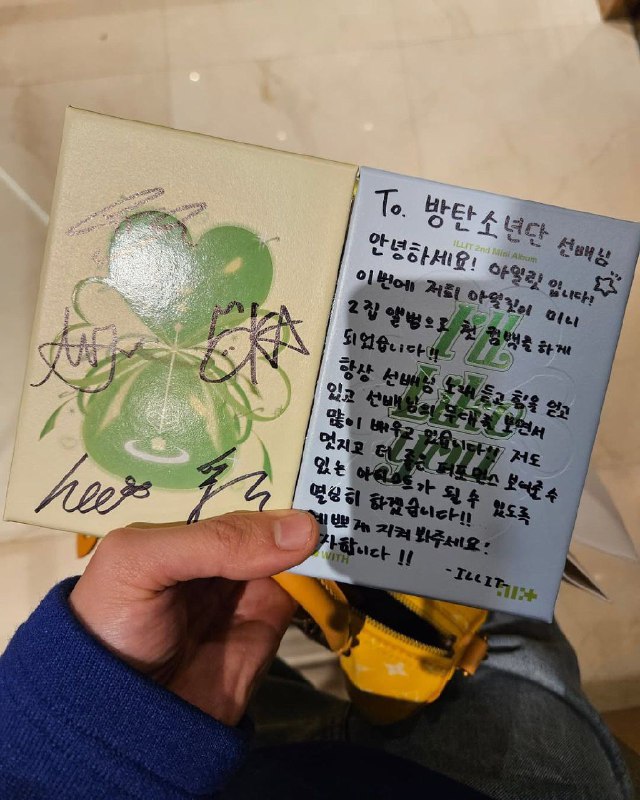 To. 방탄소년단 선배님
ILLIT 2nd Mini Album
안녕하세요! 아일릿입니다!
이번에 저희 아일릿이 미니
2집 앨범으로 첫 컴백을 하게
되었습니다!!
항상 선배님 노래 듣고 힘을 얻고
있고 선배님의 무대를 보면서
많이 배우고 있습니다!! 저도
멋지고 더 좋은 퍼포먼스 보여줄 수
있는 아티스트가 될 수 있도록
열심히 하겠습니다!!
예쁘게 지켜 봐주세요!
합니다!!
- ILLIT -
I'll
like
you
WITH